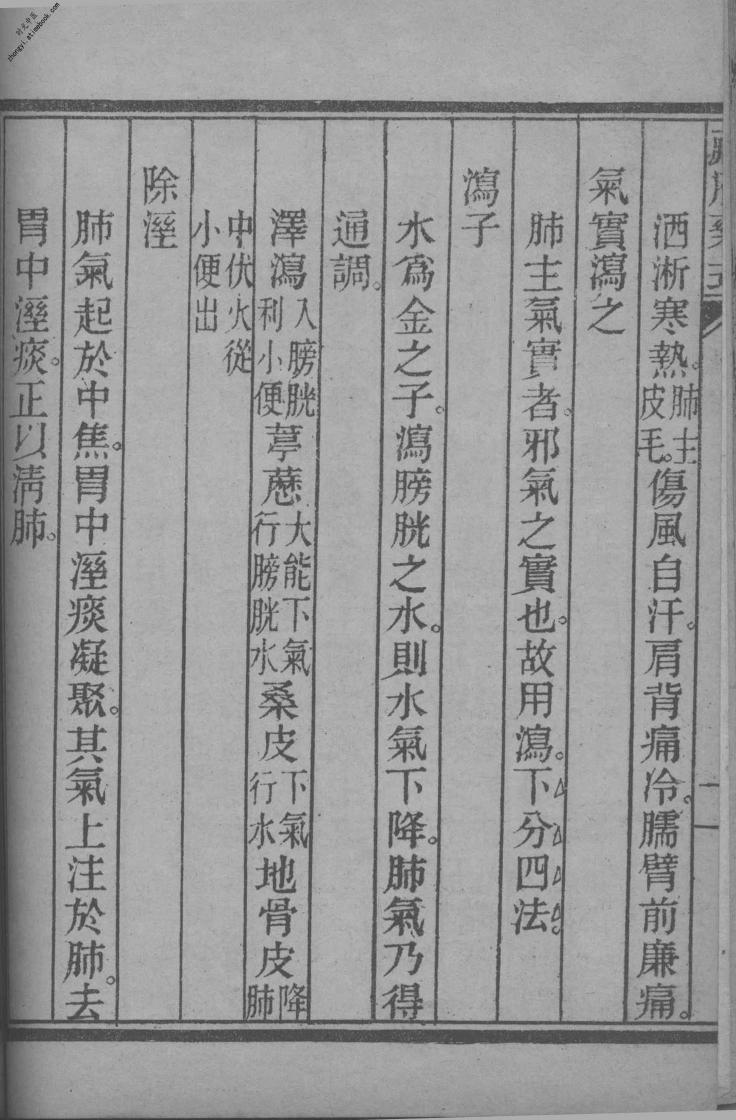 洒淅寒熱。肺主皮毛。傷風自汗。肩背痛冷。臑臂前廉痛。
氣實瀉之
肺主氣實者。邪氣之實也。故用瀉。下分四法。
瀉子
水爲金之子。瀉膀胱之水。則水氣下降。肺氣乃得
通調。
澤瀉入膀胱利小便葶藶大能下氣行膀胱水桑皮下氣行水地骨皮降肺
中伏火從小便出
除溼
肺氣起於中焦。胃中溼痰凝聚。其氣上注於肺。去
胃中溼痰。正以淸肺。
时光中医
zhongyi.stimebook.com